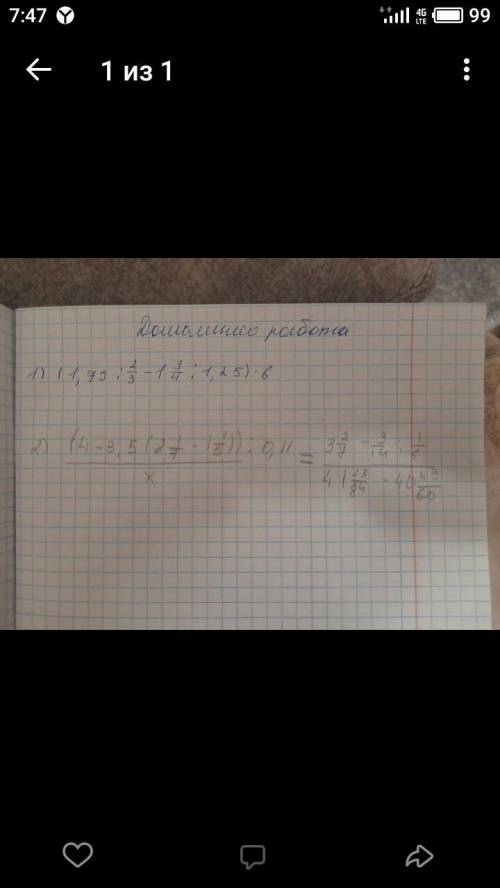 7:47 4G LTE 99
1 из 1
Домашнее работа
1) (1,75 : 2/3 - 1 3/4 : 1,25) · 6
2) ((4 - 3,5 (2 1/7 - 1 1/5)) · 0,11)/x = (3 2/7 - 3/14 : 1/6)/(41 23/84 - 40 49/60)